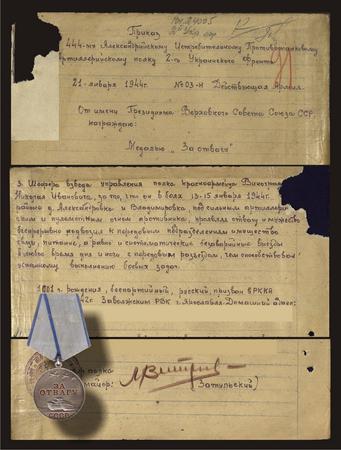 Приказ
444-му Александрийскому Истребительному Противотанковому
Артиллерийскому полку 2-го Украинского Фронта
21 января 1944г. №03-Н Действующая Армия.
От имени Президиума Верховного Совета Союза ССР
награждаю:
Медалью "За отвагу"
3. Шофера взвода управления полка красноармейца
Николая Ивановича, за то что он в боях 13-15 января 1944г.
района д. Александровка и Владимировка, под сильным артиллерий-
ским и пулеметным огнем противника, проявляя отвагу и мужество
беспрерывно подвозил к передовым подразделениям имущество
связи, питание, а равно и систематические безаварийные выезды
в любое время дня и ночи с передовым разъездом, чем способствовал
успешному выполнению боевых задач.
1901 г. рождения, беспартийный, русский, призван в РККА
Заволжским РВК г. Ярославля. Домашний адрес:
полка
майор: (Затульский)
ЗА
ОТВАГУ
СССР